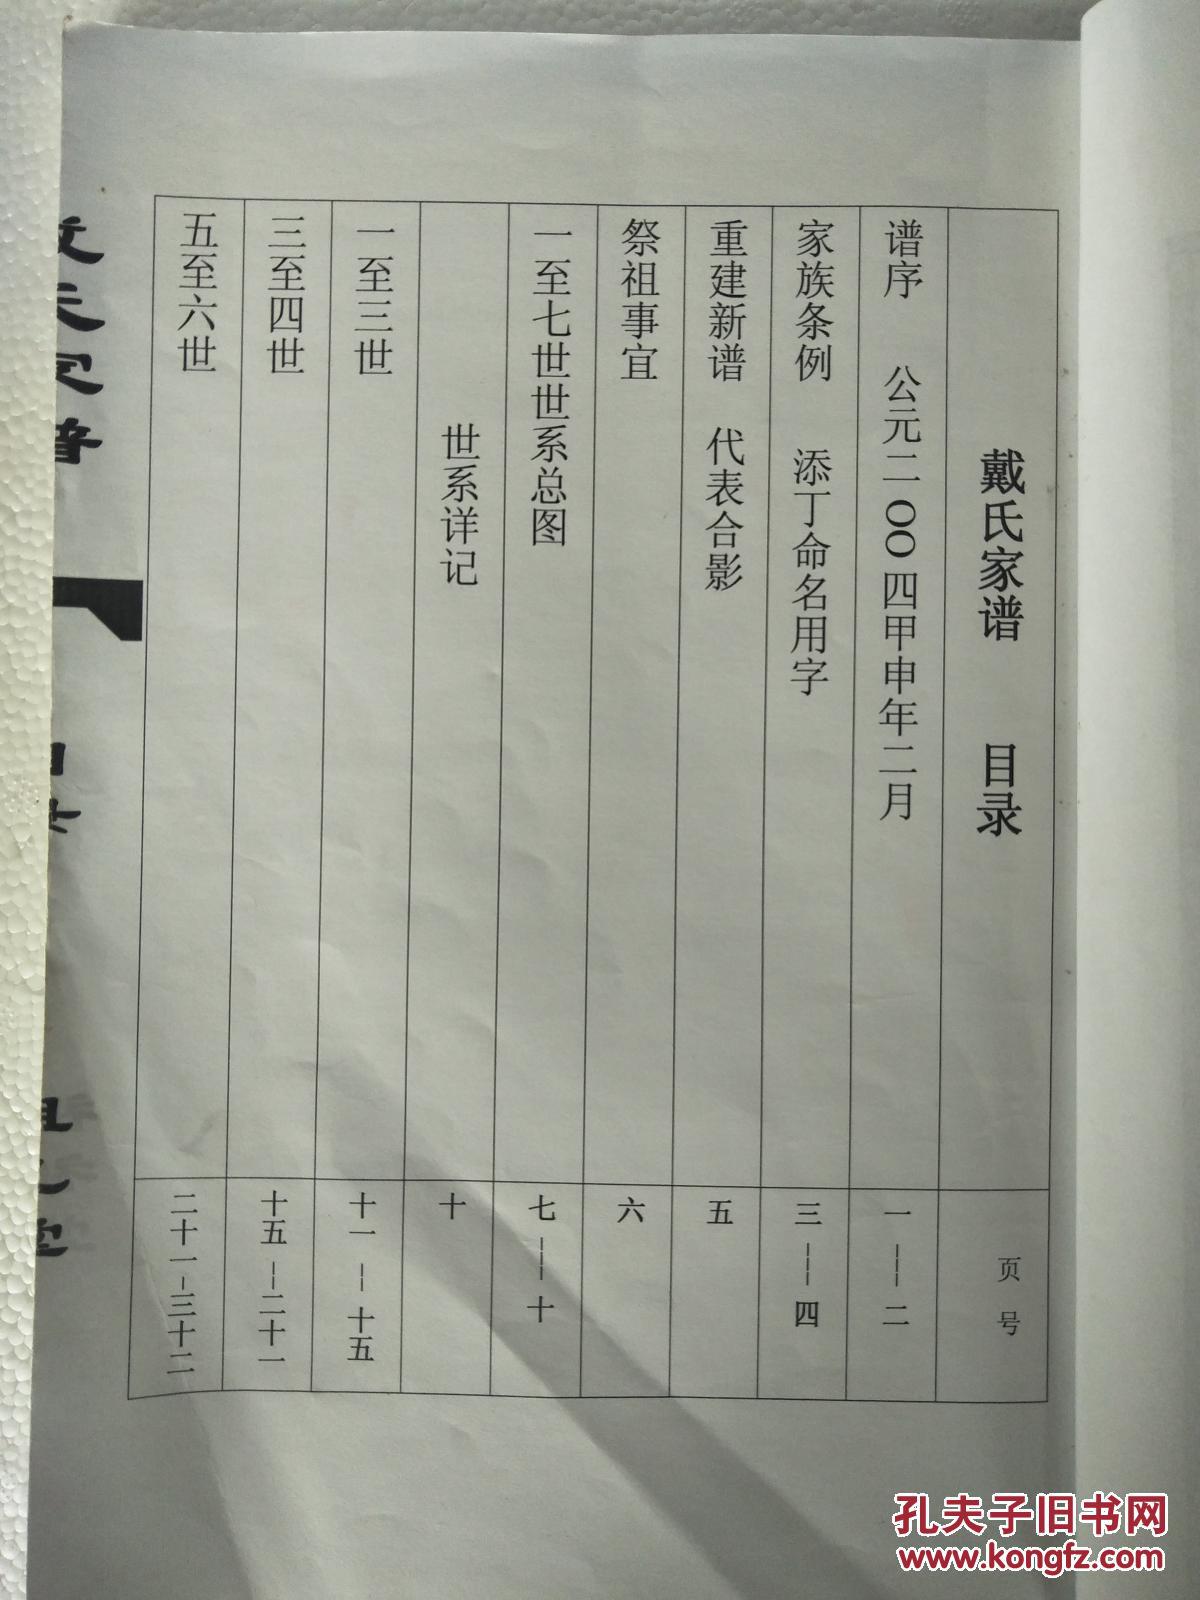 戴氏家谱 目录 页号
谱序 公元二〇〇四甲申年二月 一---二
家族条例 添丁命名用字 三---四
重建新谱 代表合影 五
祭祖事宜 六
一至七世世系总图 七---十
世系详记 十
一至三世 十一--十五
三至四世 十五--二十一
五至六世 二十一-三十二
孔夫子旧书网
www.kongfz.com